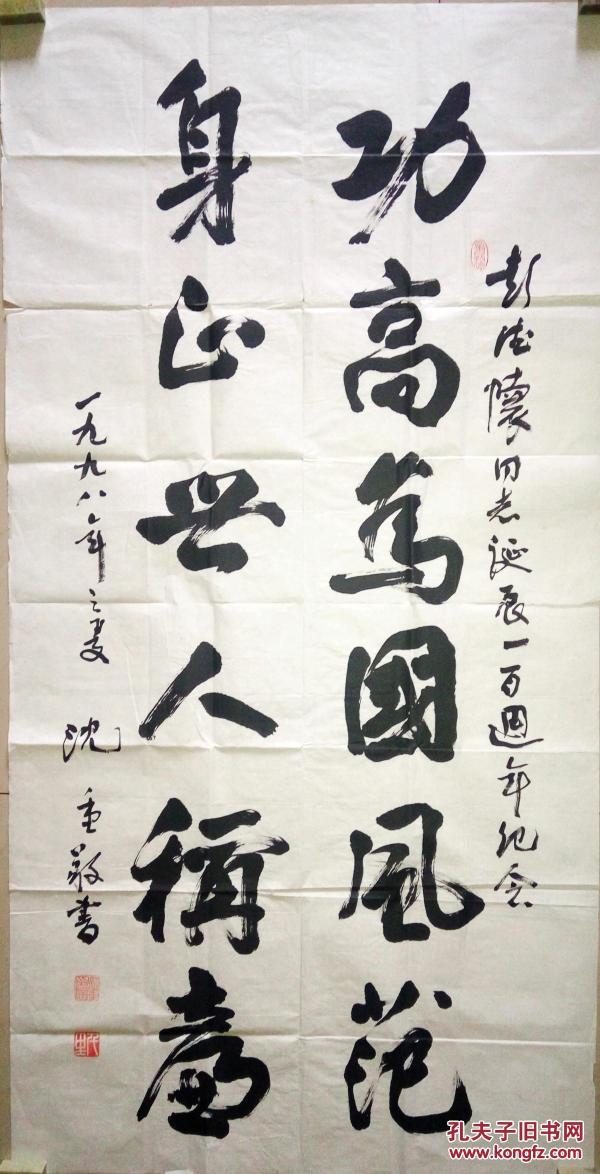 彭德懷同志诞辰一百週年纪念
功高為國風范
身正世人稱
一九九八年之夏 沈重敬書
孔夫子旧书网
www.kongfz.com